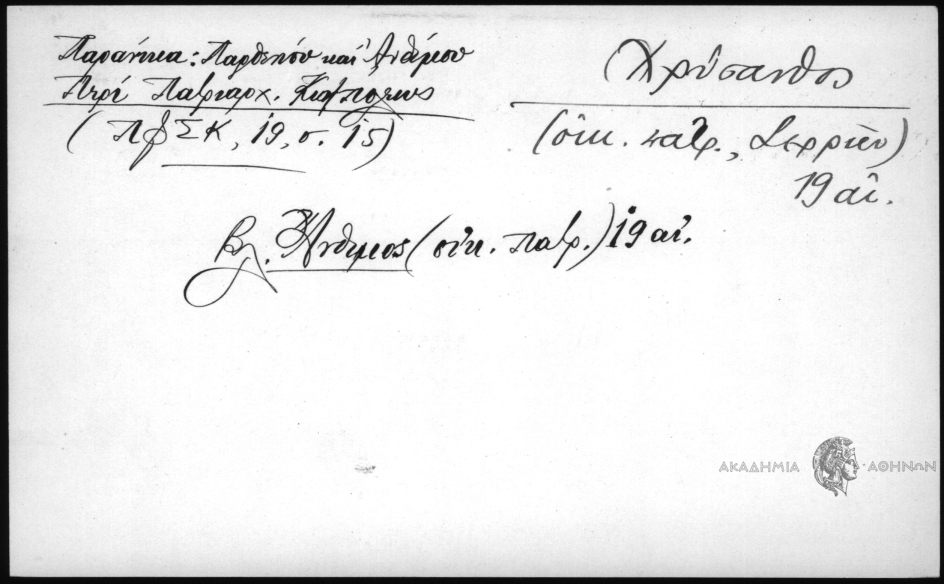 Παρανίκα: Παρθενίου καὶ Ἀνθίμου
Περί Πατριαρχ. Κωνπόλεως
(ΠφΣΚ, 19, σ. 15)
Χρύσανθος
(οἰκ. πατρ., Σερρῶν)
19 αἰ.
Βλ. Ἄνθιμος (οἰκ. πατρ.) 19 αἰ.
ΑΚΑΔΗΜΙΑ ΑΘΗΝΩΝ